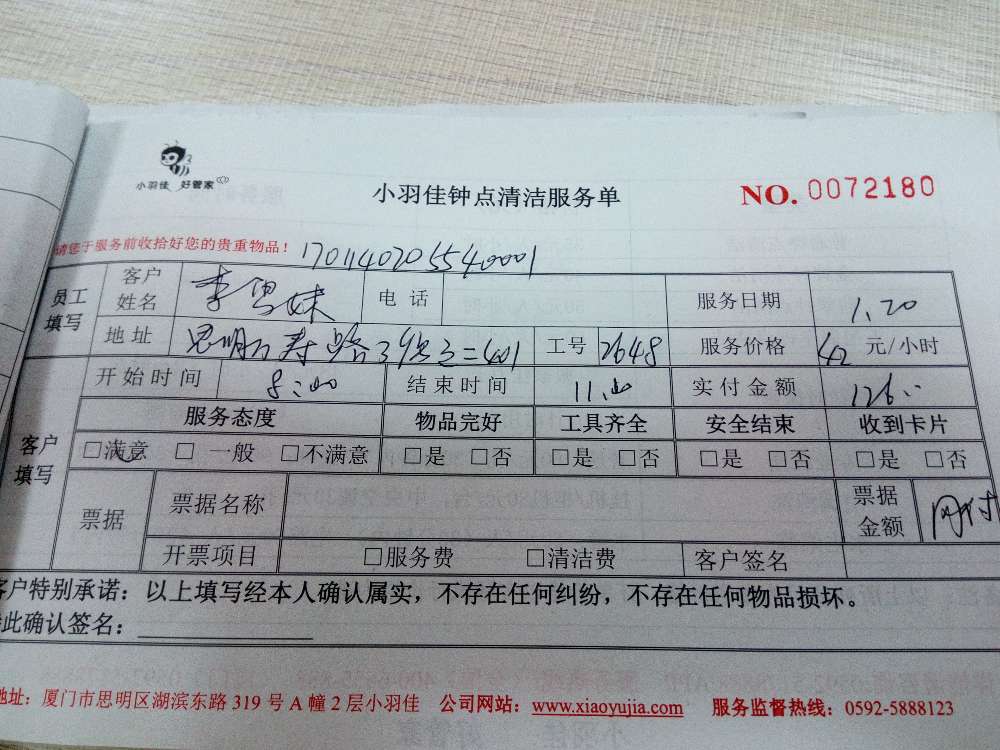 小羽佳 好管家
小羽佳钟点清洁服务单
NO. 0072180
请您于服务前收拾好您的贵重物品！
员工填写 客户姓名 李 妹 电话 服务日期 1.20
地址 思明 寿路 401 工号 2648 服务价格 42 元/小时
开始时间 8:00 结束时间 11:00 实付金额 126
客户填写 服务态度 物品完好 工具齐全 安全结束 收到卡片
□满意 □一般 □不满意 □是 □否 □是 □否 □是 □否 □是 □否
票据 票据名称 票据金额 网付
开票项目 □服务费 □清洁费 客户签名
客户特别承诺：以上填写经本人确认属实，不存在任何纠纷，不存在任何物品损坏。
此确认签名：
地址：厦门市思明区湖滨东路 319 号 A 幢 2 层小羽佳 公司网站：www.xiaoyujia.com 服务监督热线：0592-5888123